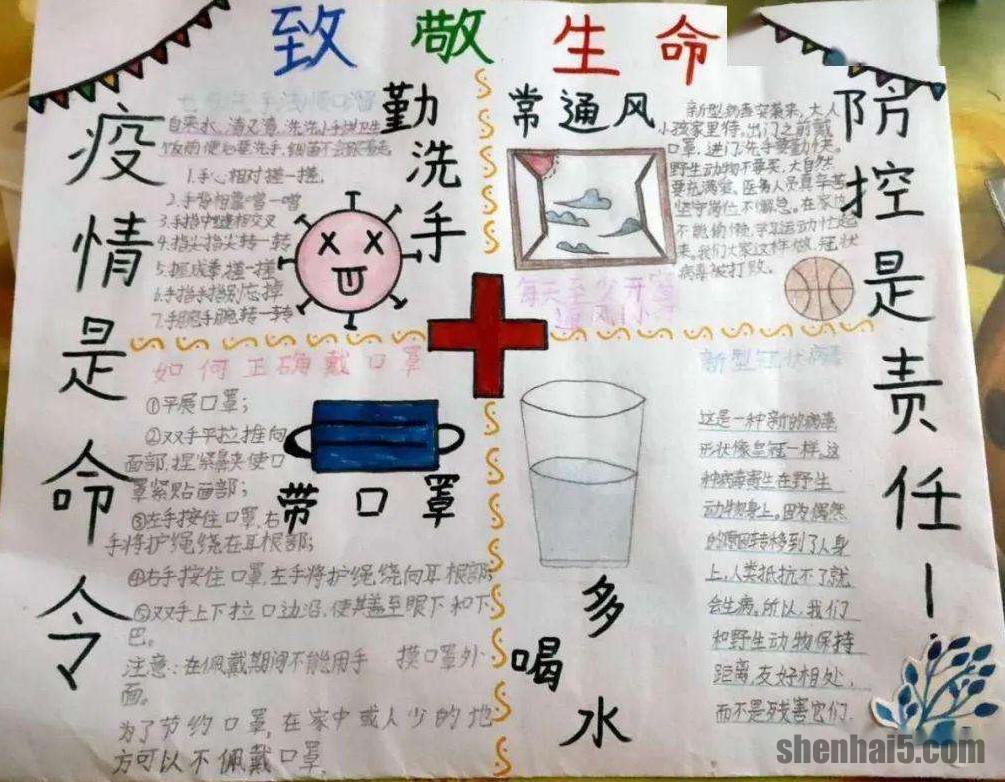 致敬生命
疫情是命令
防控是责任！
勤洗手
自来水,清又清,洗洗小手讲卫生
饭前便后要洗手,细菌不会跟着走
1.手心相对搓一搓,
2.手背相靠蹭一蹭
3.手指中缝相交叉
4.指尖指尖转一转
5.握成拳搓一搓
6.手指手指别忘掉
7.手腕手腕转一转
常通风
新型病毒突袭来,大人
小孩家里待,出门之前戴
口罩,进门洗手要勤快。
野生动物不要买,大自然
要充满爱、医务人员真辛苦
坚守岗位不懈怠。在家也
不能偷懒,学习运动忙起
来,我们大家这样做,冠状
病毒被打败。
每天至少开窗
通风
如何正确戴口罩
①平展口罩;
②双手平拉推向
面部,捏紧鼻夹使口
罩紧贴面部;
③左手按住口罩,右
手将护绳绕在耳根部;
④右手按住口罩左手将护绳绕向耳根部;
⑤双手上下拉口边沿,使其盖至眼下和下
巴。
注意:在佩戴期间不能用手 摸口罩外
面。
为了节约口罩,在家中或人少的地
方可以不佩戴口罩.
带口罩
多喝水
新型冠状病毒
这是一种新的病毒
形状像皇冠一样,这
种病毒寄生在野生
动物身上。因为偶然
的原因转移到了人身
上,人类抵抗不了就
会生病。所以,我们
和野生动物保持
距离,友好相处,
而不是残害它们.
shenhai5.com